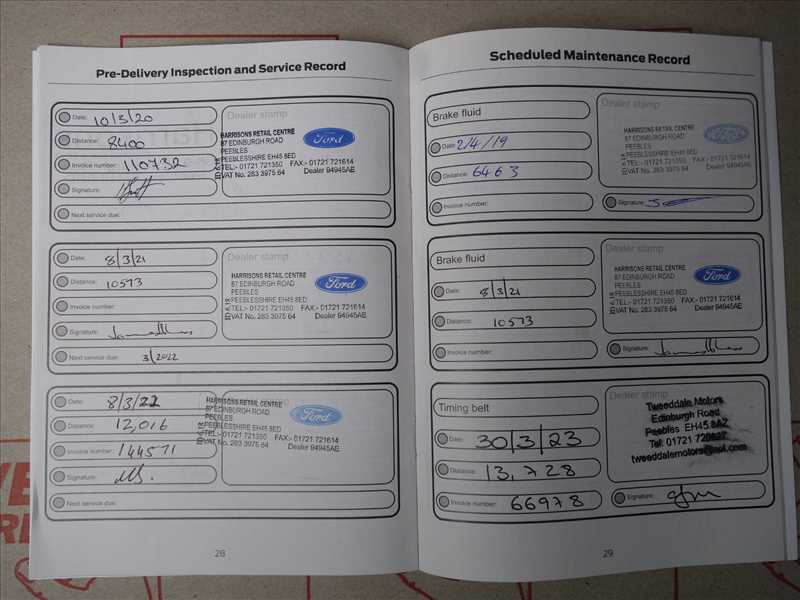 Pre-Delivery Inspection and Service Record
Date: 10/3/20
Distance: 8400
Invoice number: 110732
Signature:
Next service due:
Dealer stamp
HARRISONS RETAIL CENTRE
87 EDINBURGH ROAD
PEEBLES
PEEBLESSHIRE EH45 8ED
TEL:- 01721 721350 FAX:- 01721 721614
VAT No. 283 3975 64 Dealer 94945AE
Ford
Date: 8/3/21
Distance: 10573
Invoice number:
Signature:
Next service due: 3/2022
Dealer stamp
HARRISONS RETAIL CENTRE
87 EDINBURGH ROAD
PEEBLES
PEEBLESSHIRE EH45 8ED
TEL:- 01721 721350 FAX:- 01721 721614
VAT No. 283 3975 64 Dealer 94945AE
Ford
Date: 8/3/22
Distance: 12,016
Invoice number: 144571
Signature:
Next service due:
Dealer stamp
HARRISONS RETAIL CENTRE
87 EDINBURGH ROAD
PEEBLES
PEEBLESSHIRE EH45 8ED
TEL:- 01721 721350 FAX:- 01721 721614
VAT No. 283 3975 64 Dealer 94945AE
Ford
28
Scheduled Maintenance Record
Brake fluid
Date: 2/4/19
Distance: 6463
Invoice number:
Dealer stamp
HARRISONS RETAIL CENTRE
87 EDINBURGH ROAD
PEEBLES
PEEBLESSHIRE EH45 8ED
TEL:- 01721 721350 FAX:- 01721 721614
VAT No. 283 3975 64 Dealer 94945AE
Ford
Signature:
Brake fluid
Date: 8/3/21
Distance: 10573
Invoice number:
Dealer stamp
HARRISONS RETAIL CENTRE
87 EDINBURGH ROAD
PEEBLES
PEEBLESSHIRE EH45 8ED
TEL:- 01721 721350 FAX:- 01721 721614
VAT No. 283 3975 64 Dealer 94945AE
Ford
Signature:
Timing belt
Date: 30/3/23
Distance: 13,728
Invoice number: 66978
Dealer stamp
Tweeddale Motors
Edinburgh Road
Peebles EH45 8AZ
Tel: 01721
tweeddalemotors@aol.com
Signature:
29